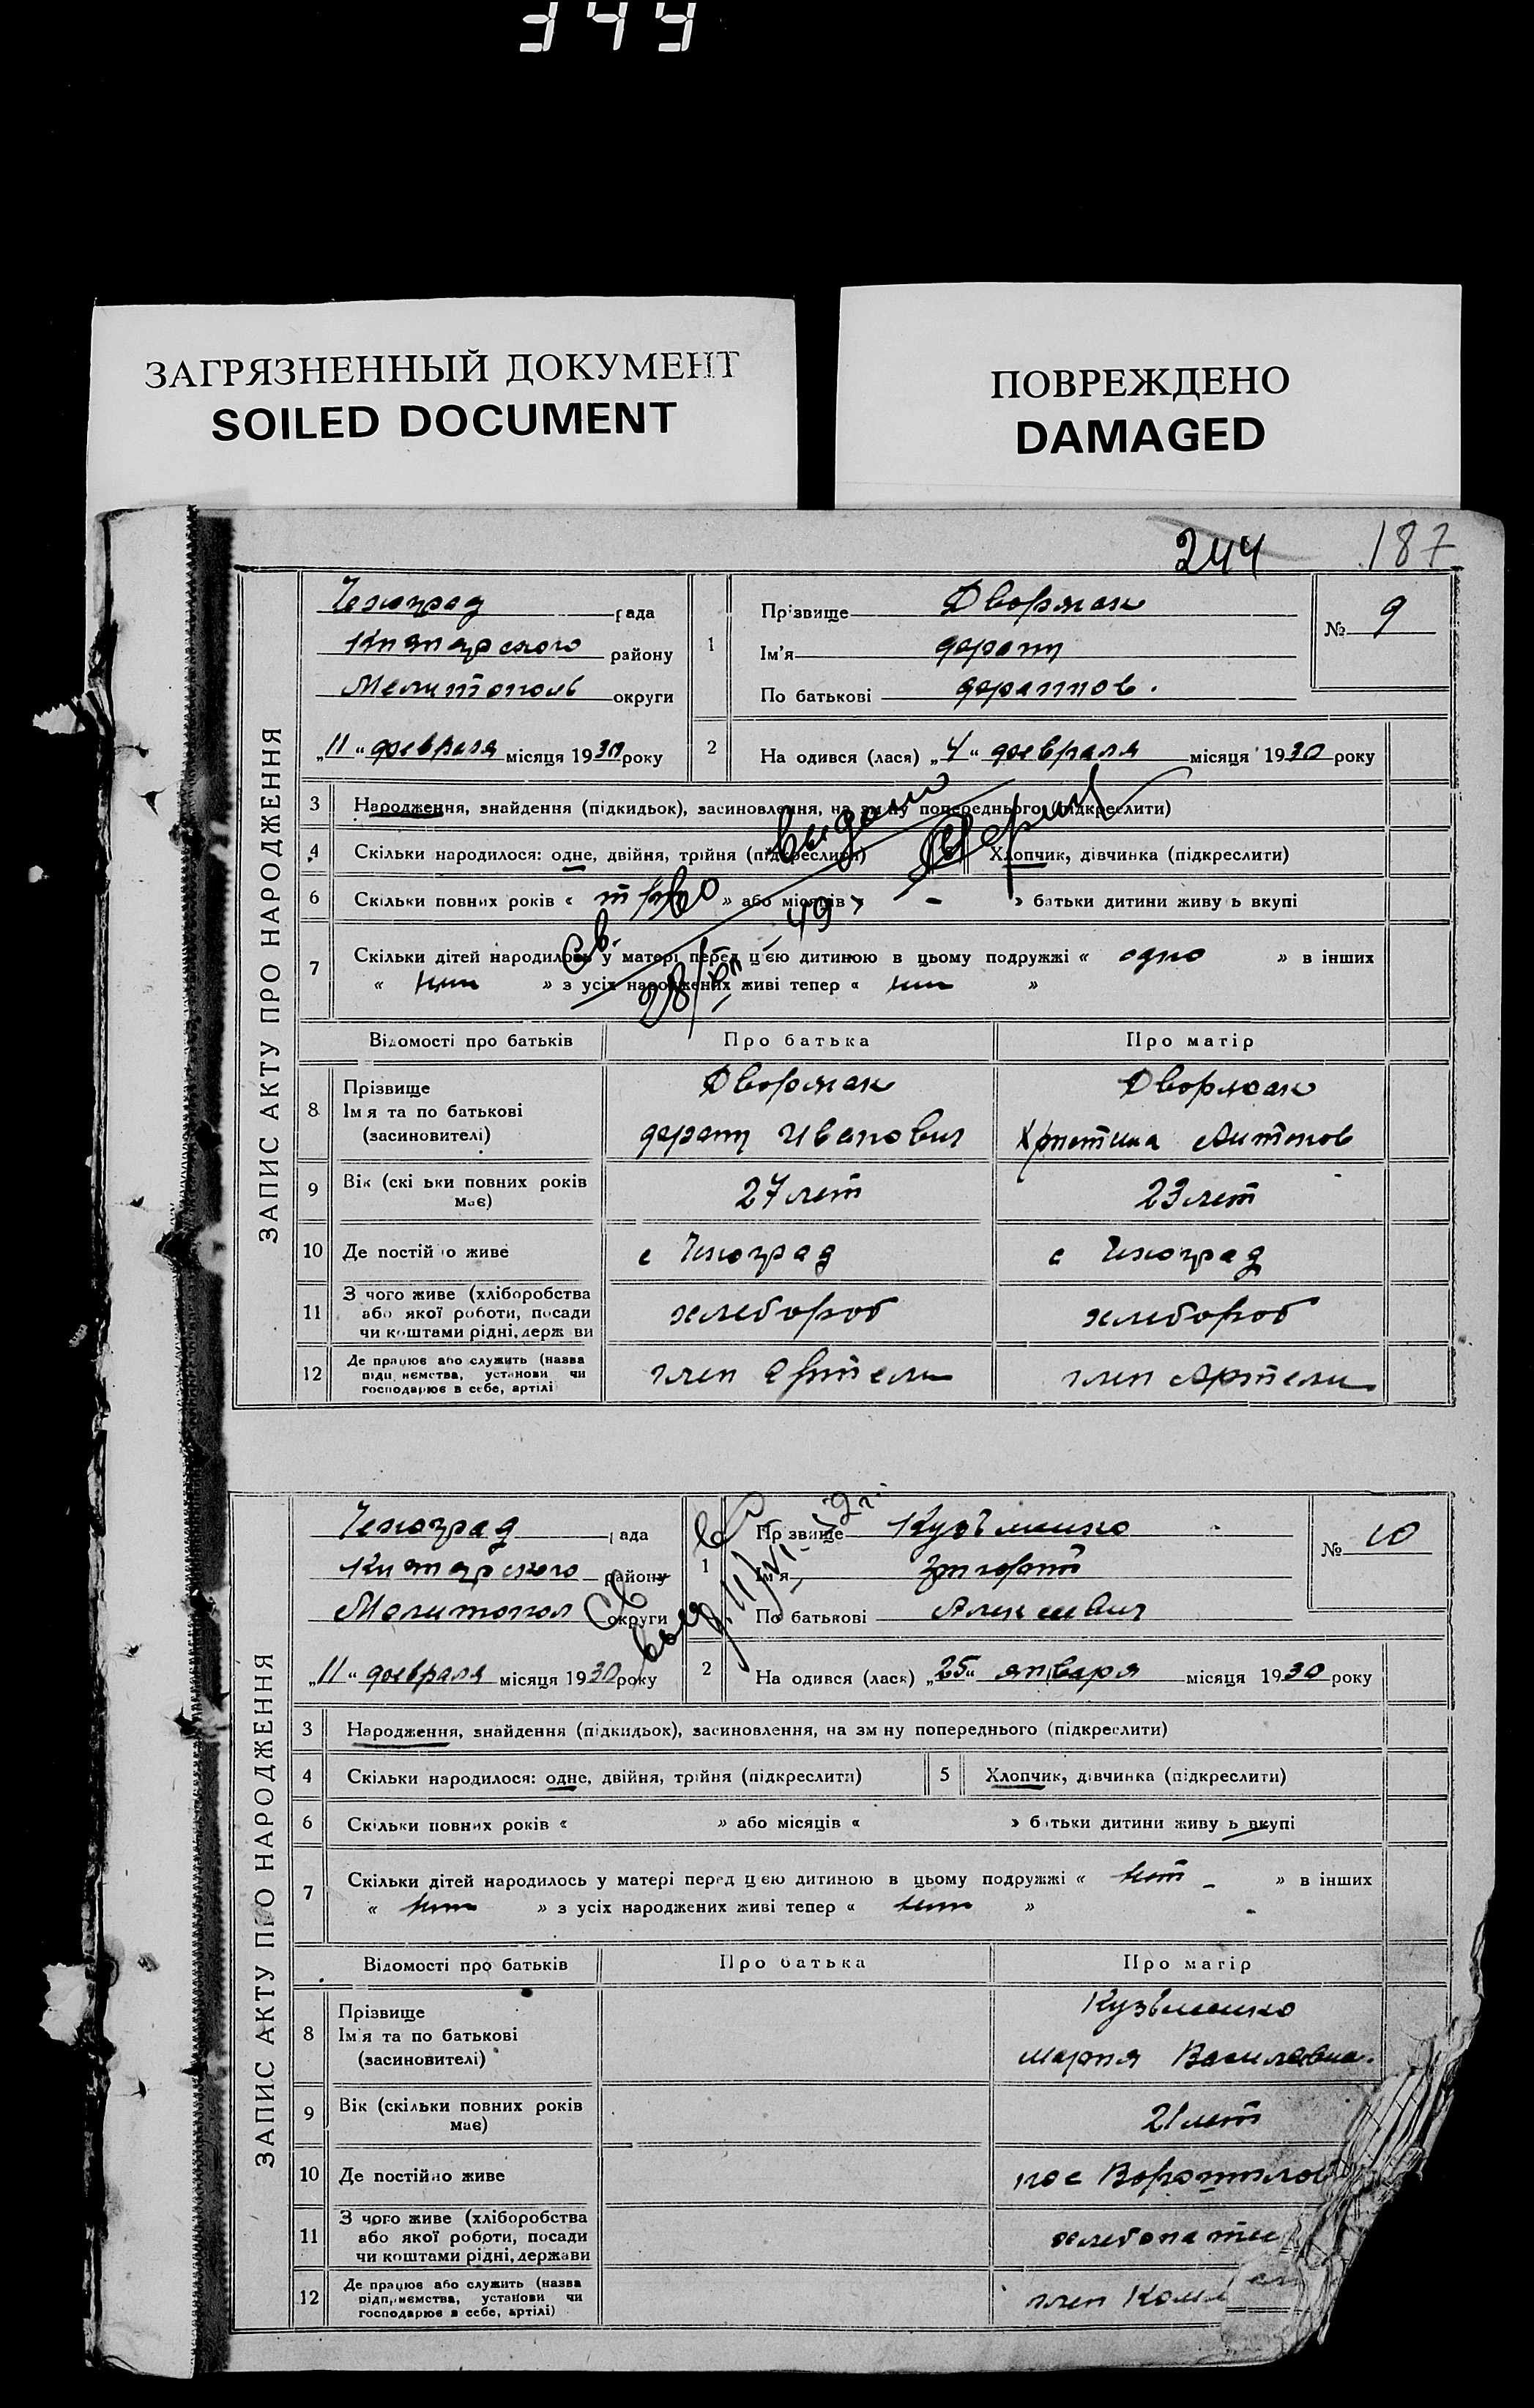 344
ЗАГРЯЗНЕННЫЙ ДОКУМЕНТ
SOILED DOCUMENT
ПОВРЕЖДЕНО
DAMAGED
244 187
ЗАПИС АКТУ ПРО НАРОДЖЕННЯ
Чехоград рада
района
Мелитополь округи
„11“ февраля місяця 1930 року
1 Прізвище Дворжак
Ім'я
По батькові
№ 9
2 На одився (лася) „4“ февраля місяця 1930 року
3 Народження, знайдення (підкидьок), засиновлення, на зм ну попереднього (підкреслити)
4 Скільки народилося: одне, двійня, трійня (підкреслити) Хлопчик, дівчинка (підкреслити)
6 Скільки повних років « » або місяців « - » батьки дитини живу ь вкупі
7 Скільки дітей народилось у матері перед цією дитиною в цьому подружжі « одно » в інших
« нет » з усіх народжених живі тепер « нет »
Св-во выдано
Відомості про батьків Про батька Про матір
8 Прізвище
Імя та по батькові
(засиновителі)
Дворжак
Иванович
Дворжак
Христина Антонов
9 Вік (скі ьки повних років має) 27 лет 23 лет
10 Де постій о живе с Чехоград с Чехоград
11 З чого живе (хліборобства
або якої роботи, посади
чи коштами рідні, держ ви
хлебороб хлебороб
12 Де працює або служить (назва
підп, иємства, установи чи
господарює в себе, артілі
член Артели член Артели
ЗАПИС АКТУ ПРО НАРОДЖЕННЯ
Чехоград рада
району
Мелитопол округи
„11“ февраля місяця 1930 року
1 Пр звище Кузьменко
Ім'я
По батькові
№ 10
2 На одився (лася) „25“ января місяця 1930 року
3 Народження, знайдення (підкидьок), засиновлення, на зм ну попереднього (підкреслити)
4 Скільки народилося: одне, двійня, трійня (підкреслити) 5 Хлопчик, дівчинка (підкреслити)
6 Скільки повних років « » або місяців « » батьки дитини живу ь вкупі
7 Скільки дітей народилось у матері перед цією дитиною в цьому подружжі « нет - » в інших
« нет » з усіх народжених живі тепер « нет »
Відомості про батьків Про батька Про матір
8 Прізвище
Імя та по батькові
(засиновителі)
Кузьменко
Мария Василевна.
9 Вік (скільки повних років має) 21 лет
10 Де постійно живе пос
11 З чого живе (хліборобства
або якої роботи, посади
чи коштами рідні, держави
12 Де працює або служить (назва
підп, иємства, установи чи
господарює в себе, артілі)
член